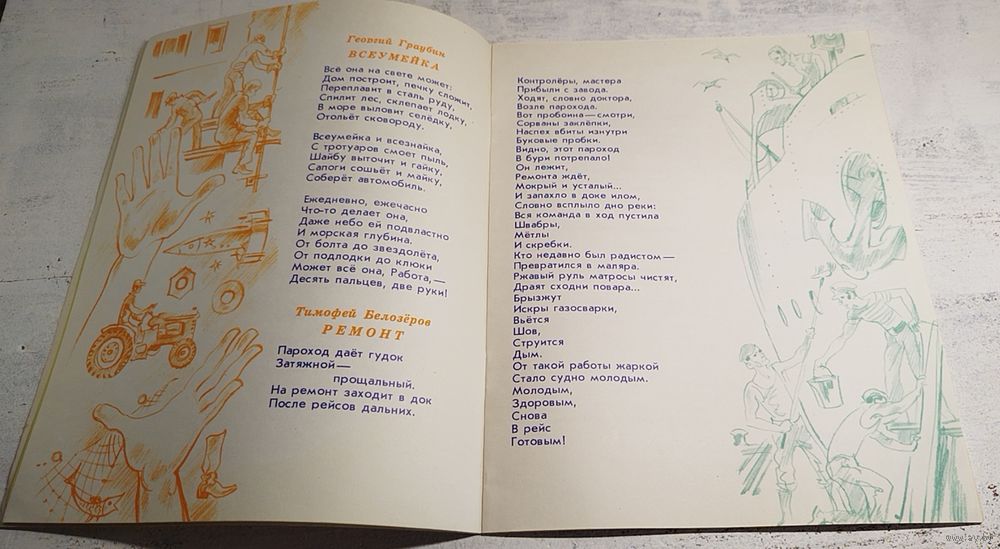 Георгий Граубин
ВСЕУМЕЙКА
Всё она на свете может:
Дом построит, печку сложит,
Переплавит в сталь руду,
Спилит лес, склепает лодку,
В море выловит селёдку,
Отольёт сковороду.
Всеумейка и всезнайка,
С тротуаров смоет пыль,
Шайбу выточит и гайку,
Сапоги сошьёт и майку,
Соберёт автомобиль.
Ежедневно, ежечасно
Что-то делает она,
Даже небо ей подвластно
И морская глубина.
От болта до звездолёта,
От подлодки до клюки
Может всё она, Работа,—
Десять пальцев, две руки!
Тимофей Белозёров
РЕМОНТ
Пароход даёт гудок
Затяжной—
прощальный.
На ремонт заходит в док
После рейсов дальних.
Контролёры, мастера
Прибыли с завода.
Ходят, словно доктора,
Возле парохода.
Вот пробоина—смотри,
Сорваны заклёпки,
Наспех вбиты изнутри
Буковые пробки.
Видно, этот пароход
В бури потрепало!
Он лежит,
Ремонта ждёт,
Мокрый и усталый...
И запахло в доке илом,
Словно всплыло дно реки:
Вся команда в ход пустила
Швабры,
Мётлы
И скребки.
Кто недавно был радистом—
Превратился в маляра.
Ржавый руль матросы чистят,
Драят сходни повара...
Брызжут
Искры газосварки,
Вьётся
Шов,
Струится
Дым.
От такой работы жаркой
Стало судно молодым.
Молодым,
Здоровым,
Снова
В рейс
Готовым!